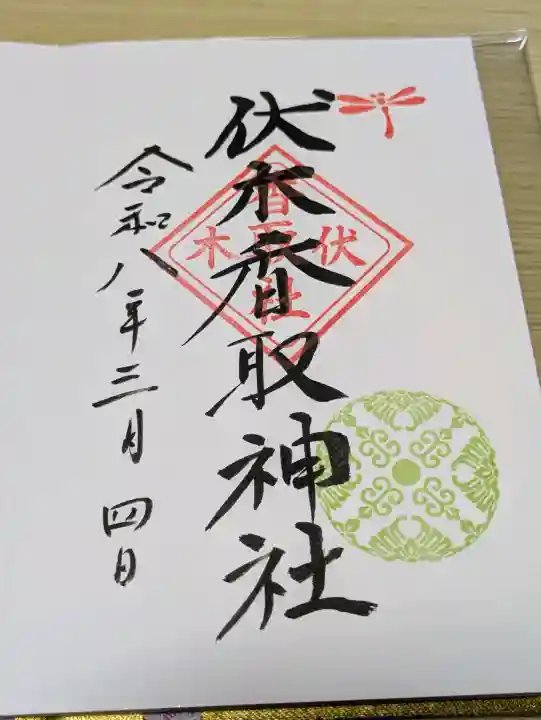 伏木香取神社
令和八年三月四日
伏
香取社
木